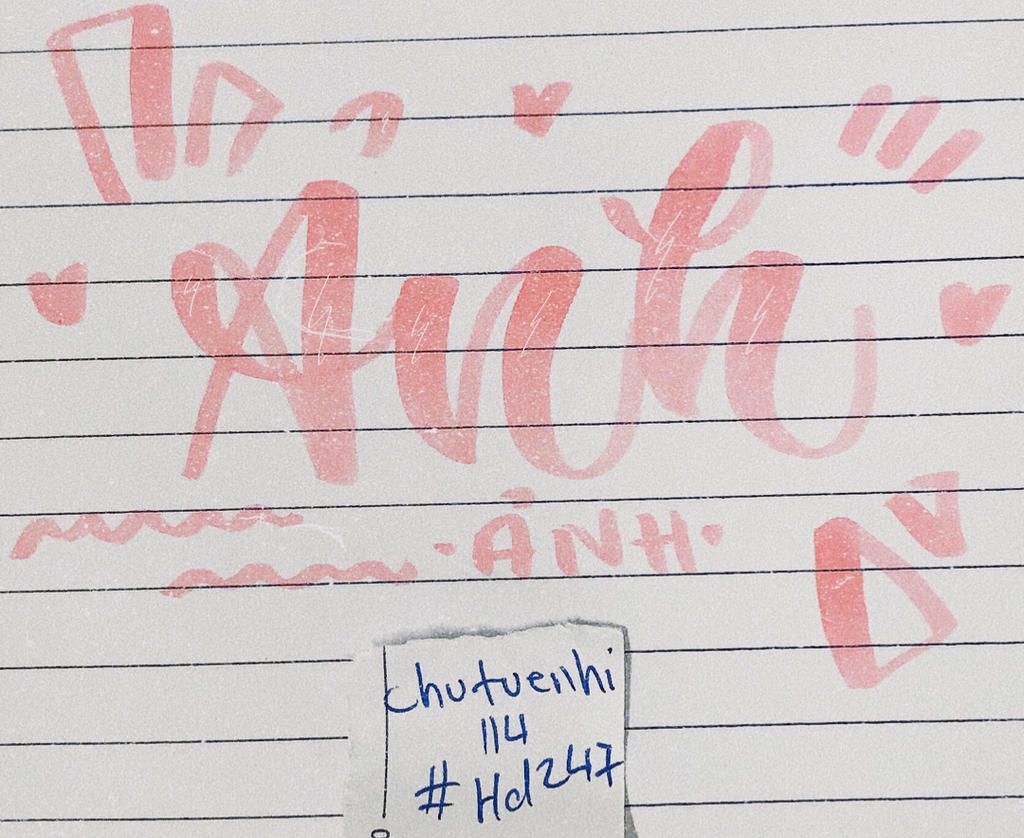 Ảnh
• ẢNH •
chutuenhi
114
#Hd247